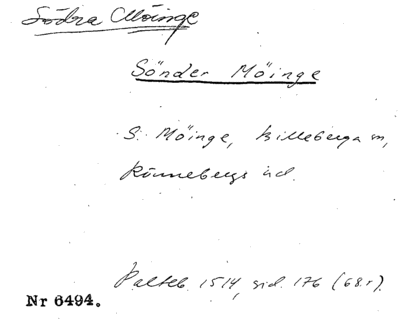 Södra Möinge
Sönder Möinge
S. Möinge, Billeberga sn,
Rönnebergs hd.
Palteb. 1514, sid. 176 (68.r).
Nr 6494.